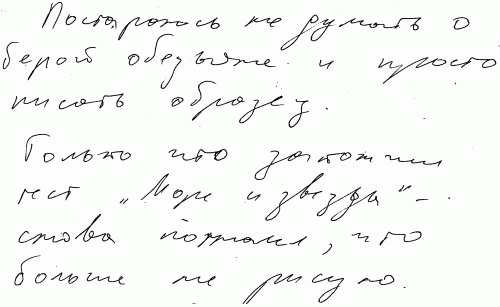 Постараюсь не думать о
белой обезьяне и просто
писать образец.
Только что закончил
тест "Море и звезды" –
снова понял, что
больше не рисую.